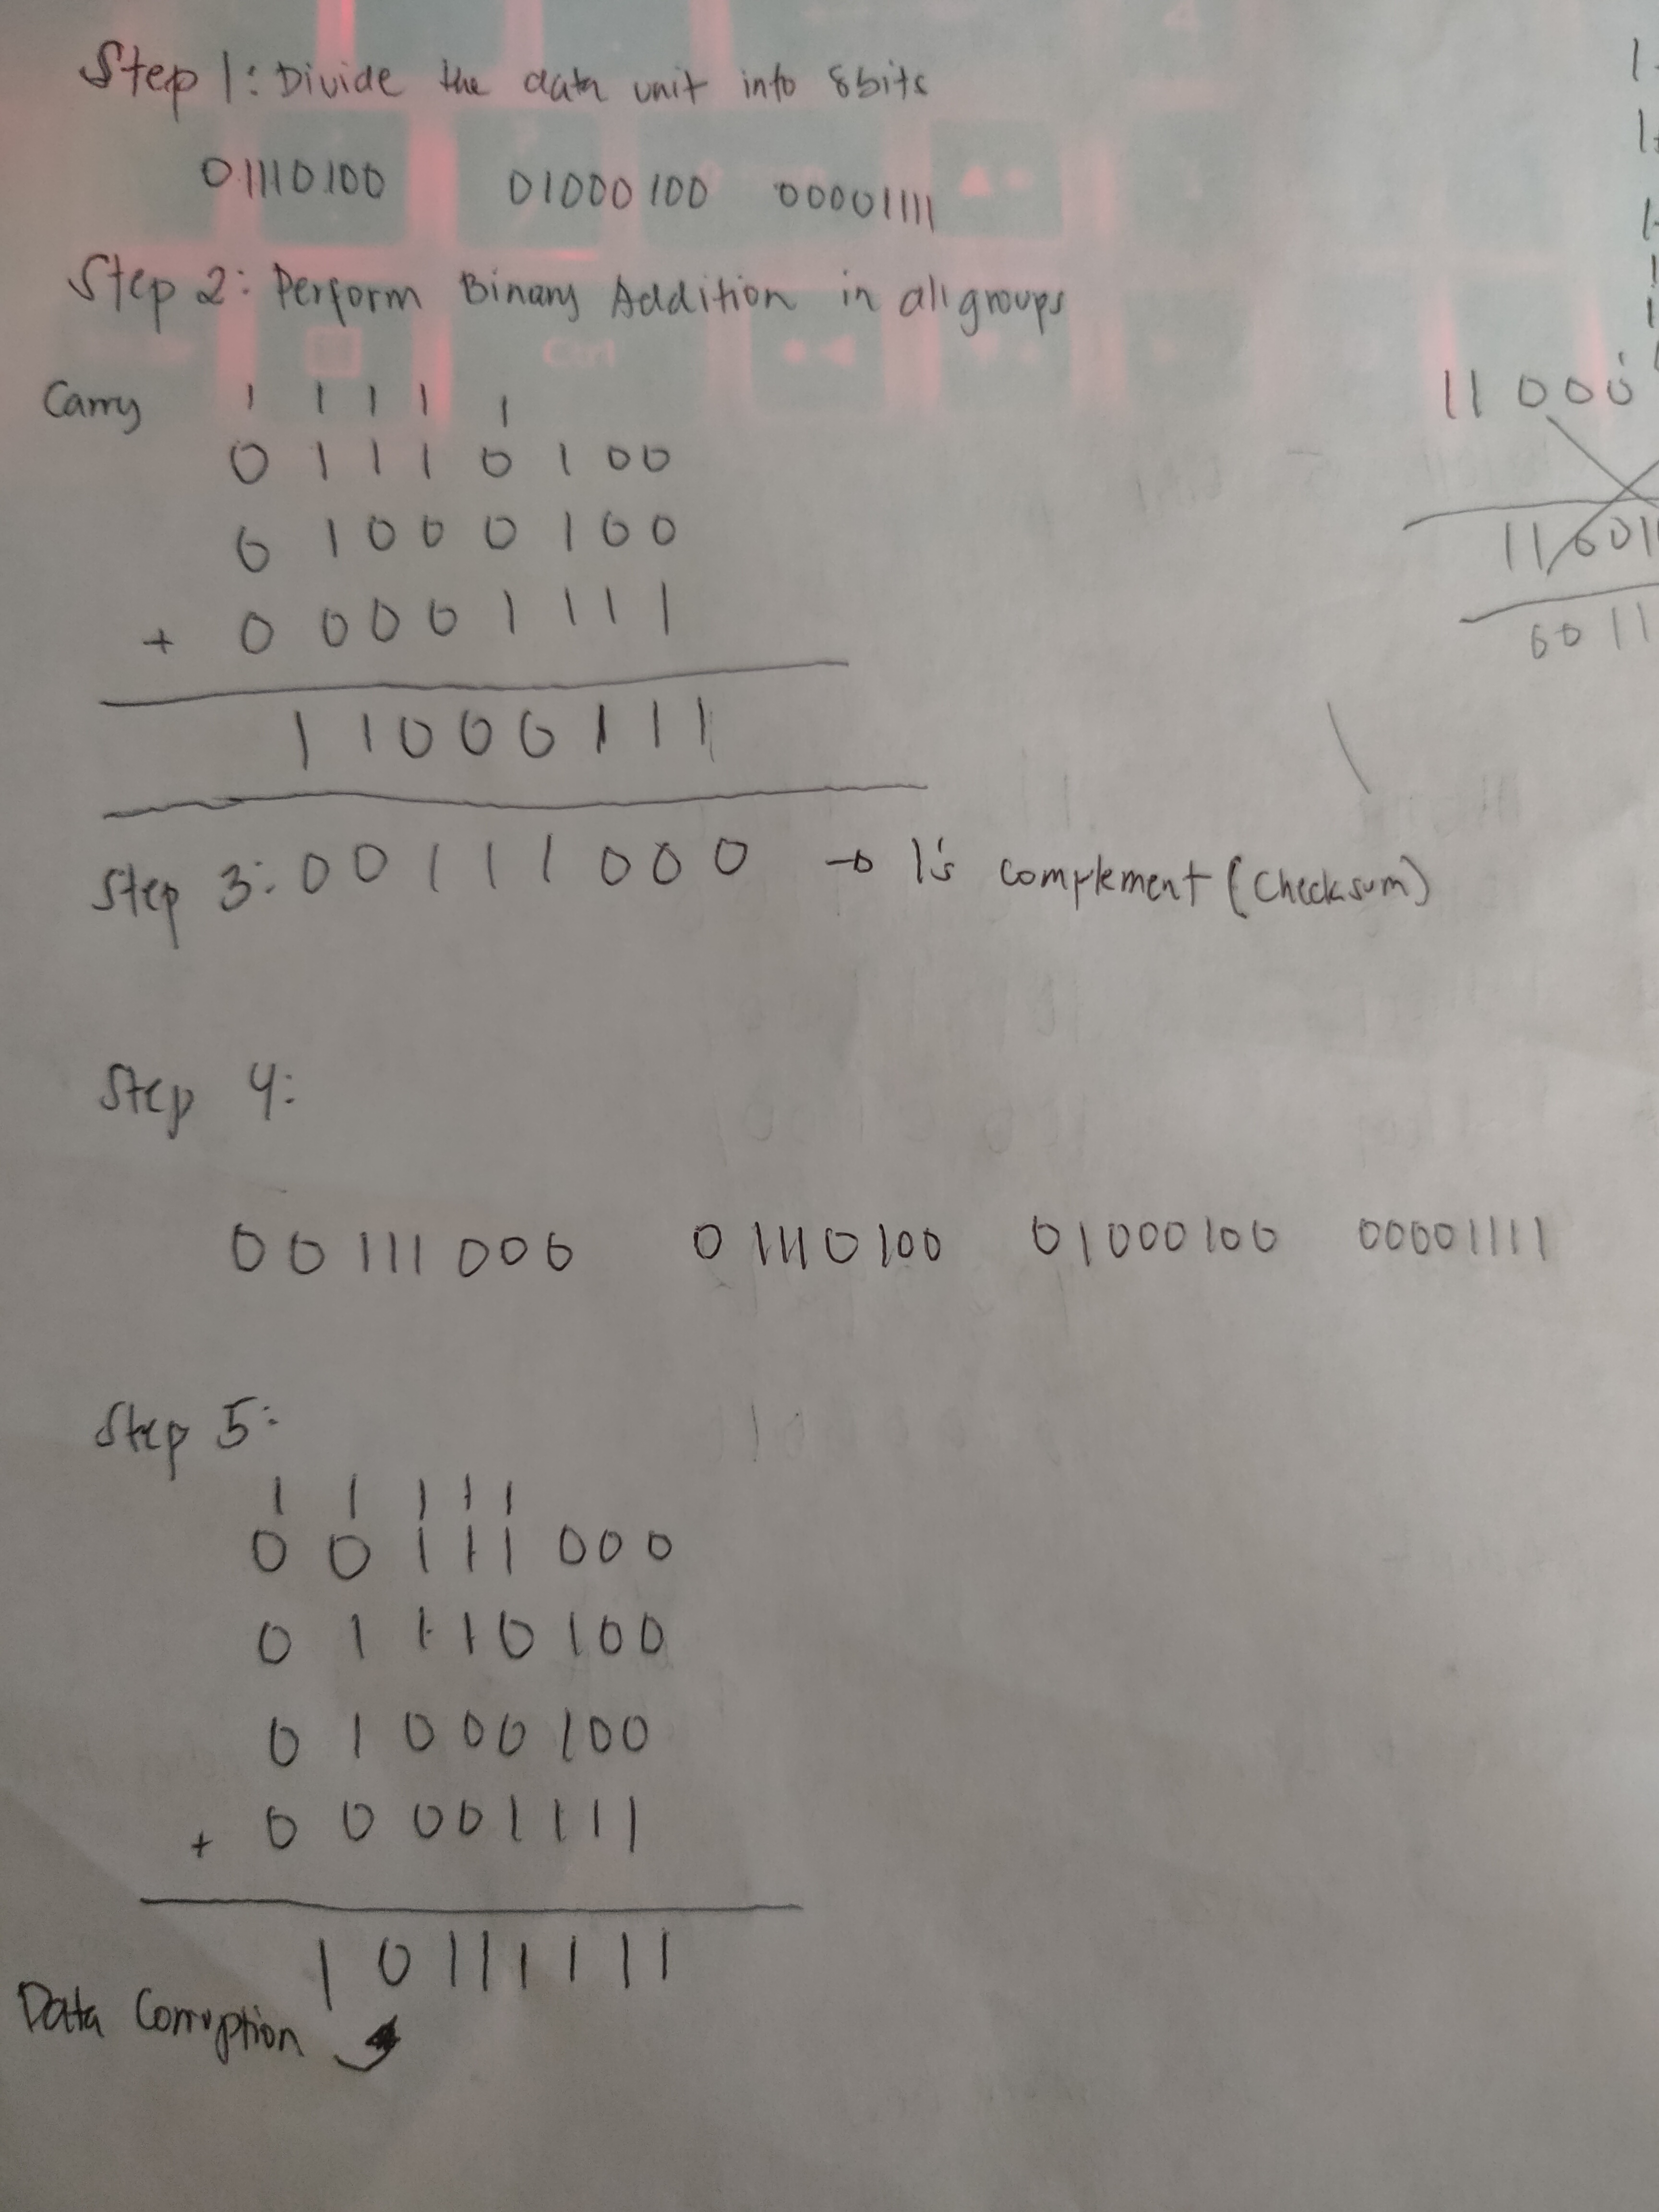 Step 1: Divide the data unit into 8bits
01110100 01000100 00001111
Step 2: Perform Binary Addition in all groups
Carry 1 1 1 1 1
0 1 1 1 0 1 0 0
0 1 0 0 0 1 0 0
+ 0 0 0 0 1 1 1 1
1 1 0 0 0 1 1 1
Step 3: 0 0 1 1 1 0 0 0 → 1's complement (Checksum)
Step 4:
00111000 01110100 01000100 00001111
Step 5:
1 1 1 1 1
0 0 1 1 1 0 0 0
0 1 1 1 0 1 0 0
0 1 0 0 0 1 0 0
+ 0 0 0 0 1 1 1 1
1 0 1 1 1 1 1 1
Data Corruption
1
1
1
1
1
11000
11001
0011
Ctrl